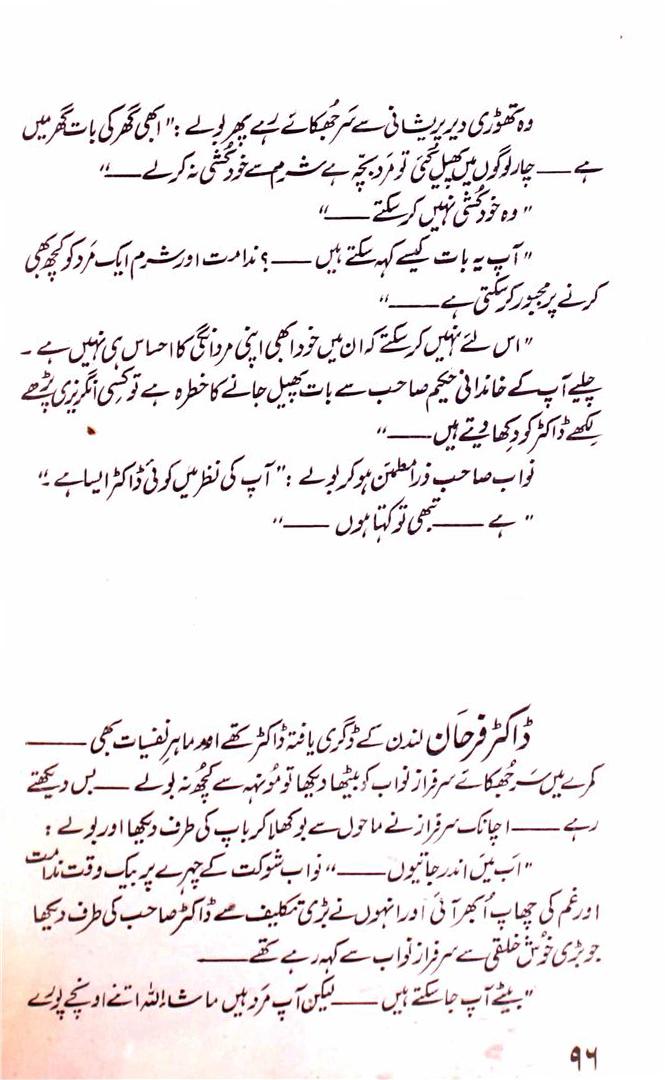 وہ تھوڑی دیر پریشانی سے سَر جُھکائے رہے پھر بولے :" ابھی گھر کی بات گھر میں
ہے —— چار لوگوں میں پھیل گئی تو مَرد بچّہ ہے شرم سے خود کُشی نہ کرلے ——"
" وہ خود کُشی نہیں کر سکتے ——"
" آپ یہ بات کیسے کہہ سکتے ہیں —— ؟ ندامت اور شرم ایک مَرد کو کچھ بھی
کرنے پر مجبور کر سکتی ہے ——"
" اس لئے نہیں کر سکتے کہ ان میں خود ابھی اپنی مردانگی کا احساس ہی نہیں ہے ۔
چلیے آپ کے خاندانی حکیم صاحب سے بات پھیل جانے کا خطرہ ہے تو کسِی انگریزی پڑھے
لِکھے ڈاکٹر کو دِکھا دیتے ہیں ——"
نواب صاحب ذرا مطمئن ہو کر بولے :" آپ کی نظر میں کوئی ڈاکٹر ایسا ہے ۔"
" ہے —— تبھی تو کہتا ہوں ——"
ڈاکٹر فرحان لندن کے ڈگری یافتہ ڈاکٹر تھے اور ماہرِ نفسیات بھی ——
کمرے میں سَر جُھکائے سرفراز نواب کو بیٹھا دیکھا تو مُونہہ سے کچُھ نہ بولے —— بس دیکھتے
رہے —— اچانک سرفراز نے ماحول سے بوکھلا کر باپ کی طرف دیکھا اور بولے :
" اَب مَیں اندر جاتیوں ——" نواب شوکت کے چہرے پر بیک وقت ندامت
اور غم کی چھاپ اُبھر آئی اور انہوں نے بڑی تکلیف سے ڈاکٹر صاحب کی طرف دیکھا
جو بڑی خُوش خلقی سے سرفراز نواب سے کہہ رہے تھے ——
" بیٹے آپ جا سکتے ہیں —— لیکن آپ مرد ہیں ماشاءاللہ اتنے اونچے پورے
۹۶